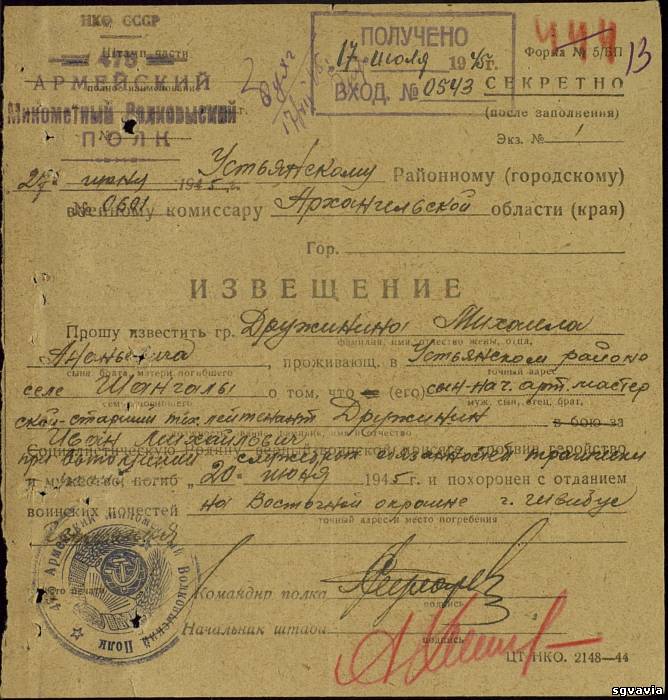 НКО СССР
Штамп части
475
АРМЕЙСКИЙ
полное наименование
Минометный Волковыский
ПОЛК
№
ПОЛУЧЕНО
17 июля 1945г.
ВХОД. № 0543
Форма № 5/БП
13
СЕКРЕТНО
(после заполнения)
Экз. № 1
27 июня 1945 г.
№ 0601
Устьянскому Районному (городскому)
военному комиссару Архангельской области (края)
Гор.
ИЗВЕЩЕНИЕ
Прошу известить гр. Дружинина Михаила
фамилия, имя, отчество жены, отца,
Ананьевича, проживающ. в Устьянском районе
сына, брата, матери погибшего
точный адрес
селе Шангалы о том, что (его) сын-нач. арт. мастер
муж, сын, отец, брат,
ской-старший тех. лейтенант Дружинин в бою за
Иван Михайлович
Социалистическую Родину, проявив геройство
при выполнении служебных обязанностей
и мужество, погиб „20" июня 1945 г. и похоронен с отданием
воинских почестей на Восточной окраине г.
точный адрес и место погребения
Место печати
Армейский Минометный Волковыский Полк
Командир полка
подпись
Начальник штаба
подпись
ЦТ НКО. 2148—44
sgvavia